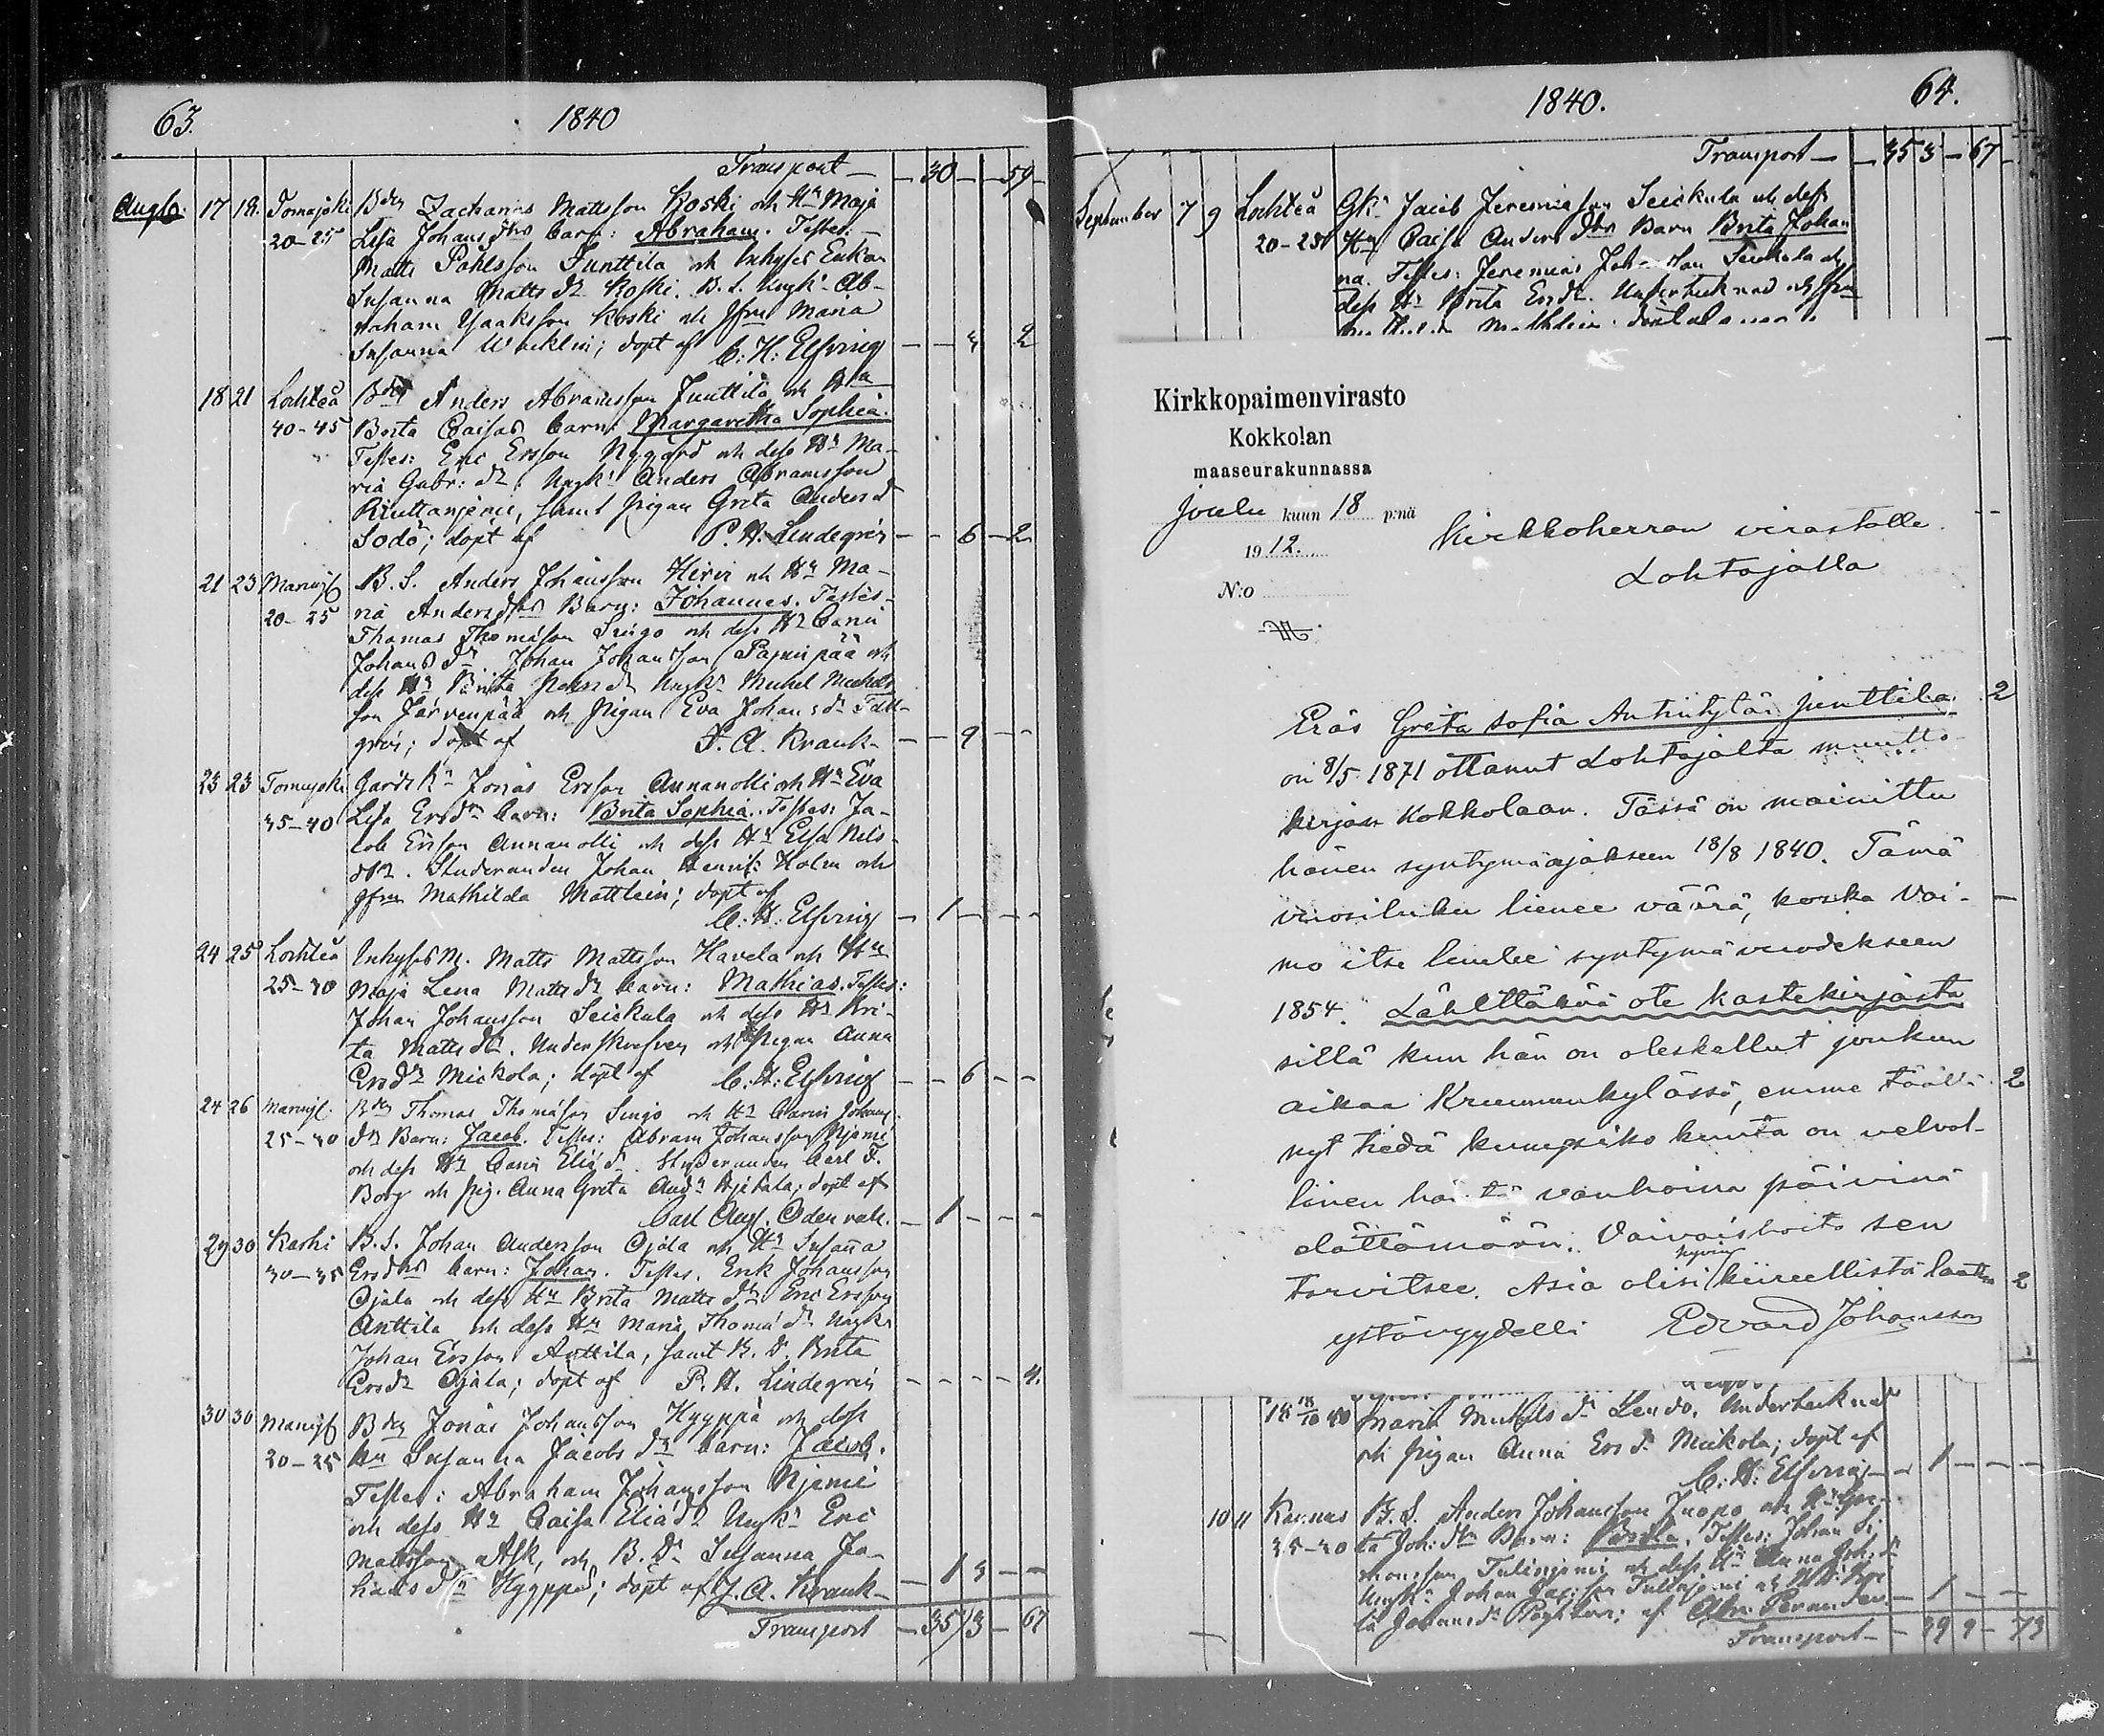 63.
1840
Transport — — 30 — — 59 —
Augti: 17 19. Tomujoki Bdn Zacharias Mattsson Koski och Hu Maja
20-25 Lisa Johansdrs barn: Abraham. Testes:
Matts Pahlsson Junttila och Inhyses Enkan
Susanna Matts dr Koski. B. S. Ungk. Ab-
raham Ysaksson Koski och Jfru Maria
Susanna Wacklin; döpt af C. H. Elfving — — 3 2
18 21 Lochteå Bdn Anders Abramsson Junttila och Hu
40-45 Brita Caisas barn: Margaretha Sophia.
Testes: Eric Ersson Nygård och dess Hu Ma-
ria Gabr: dr. Ungk: Anders Abramsson
samt Pigan Greta Anders d
Sodö; döpt af P. H. Lindegrén — — 6 — 2
21 23 Marinjß B. S. Anders Johansson Hirvi och Hu Ma-
20-25 ria Andersdrs Barn: Johannes. Testes:
Thomas Thomasson Lingo och dess Hu Carin
Johans dr. Johan Johansson Pajunpää och
dess Hu Brita dr Ungk: Michel Michels
son Järvenpää och Pigan Eva Johans dr Täll-
grén; döpt af J. A. Krank — — — 9 — —
23 23 Tomujoki Gårdsk: Jonas Ersson Annanolli och Hu Eva
35-40 Lisa Ersdrs barn: Brita Sophia. Testes: Ja-
cob Ersson Annanolli och dess Hu Elsa Nils
dr. Studeranden Johan Henric Holm och
Jfrun Mathilda Mattlein; döpt af
C. H. Elfving — 1 — — —
24 25 Lochteå Inhyses M. Matts Mattsson Havela och Hu
25-30 Maja Lena Matts dr barn: Mathias. Testes:
Johan Johansson Seickula och dess Hu Bri-
ta Matts dr. Underskrefven och Pigan Anna
Ersdr Mickola; döpt af C. H. Elfving — — 6 — —
24 26 Marinjß Bdn Thomas Thomasson Lingo och Hu Carin Johans
25-30 drs Barn: Jacob. Testes: Abram Johansson Njemi
och dess Hu Carin Eliæ dr. Studeranden Carl F.
Borg och Pig. Anna Greta And: Hietala; döpt af
Carl Aug. Odenvall. — 1 — — —
29 30 Karhi B. S. Johan Andersson Ojala och Hu Susanna
30-35 Ersdrs barn: Johan. Testes. Erik Johansson
Ojala och dess Hu Brita Matts dr Eric Ersson
Anttila och dess Hu Maria Thomæ dr Ungk:
Johan Ersson Anttila, samt B. D. Brita
Ersdr Ojala; döpt af P. H. Lindegrén — — — — 4.
30 30 Marinjß Bdn Jonas Johansson Hyyppä och dess
20-25 hu Susanna Jacobs drs barn: Jacob.
Testes: Abraham Johansson Njemi
och dess Hu Caisa Eliæ dr Ungk: Eric
Mattsson Ask, och B. Dr Susanna Jo-
hans dr Hyyppä; döpt af J. A. Krank — — 1 3 — —
Transport — 35 3 — 67
1840.
64.
Transport — — 35 3 — 67 —
September 7 9 Lochteå Gk: Jacob Jeremiasson Seickula och dess
20-25 Hu Caisa Anders drs Barn Brita Johan
na. Testes: Jeremias Johansson Seickula och
dess Hu Brita Ersdr. Undertecknad och Jfru
Kirkkopaimenvirasto
Kokkolan
maaseurakunnassa
Joulu kuun 18 p:nä
1912.
N:o
Kirkkoherran virastolle
Lohtajalla
Eräs Greta Sofia Antintytär Junttila
on 8/5 1871 ottanut Lohtajalta muutto-
kirjan Kokkolaan. Tässä on mainittu
hänen syntymäajakseen 18/8 1840. Tämä
vuosiluku lienee väärä, koska vai-
mo itse luulee syntymävuodekseen
1854. Lähettäkää ote kastekirjasta
sillä kun hän on oleskellut jonkun
aikaa Kruununkylässä, emme täällä
nyt tiedä kumpiko kunta on velvol-
linen häntä vanhoina päivinä
elättämään. Vaivaishoito sen
tarvitsee. Asia olisi hyvin kiireellistä laatua
ystävyydellä Edvard Johansson
18 18/10 40 Maria Michels dr Lendo. Undertecknad
och Pigan Anna Ers dr Mickola; döpt af
C. H. Elfving — — 1 — — —
10 11 Karnus B. S. Anders Johansson Juopo och Hu Gre-
25-30 ta Joh: drs Barn: Brita. Testes: Johan Si-
monsson Tulinjemi och dess Hu Anna Joh: dr
Ungk: Johan
ta Johans dr af Abr. Peranden — 1 — —
Transport — 39 9 — 73